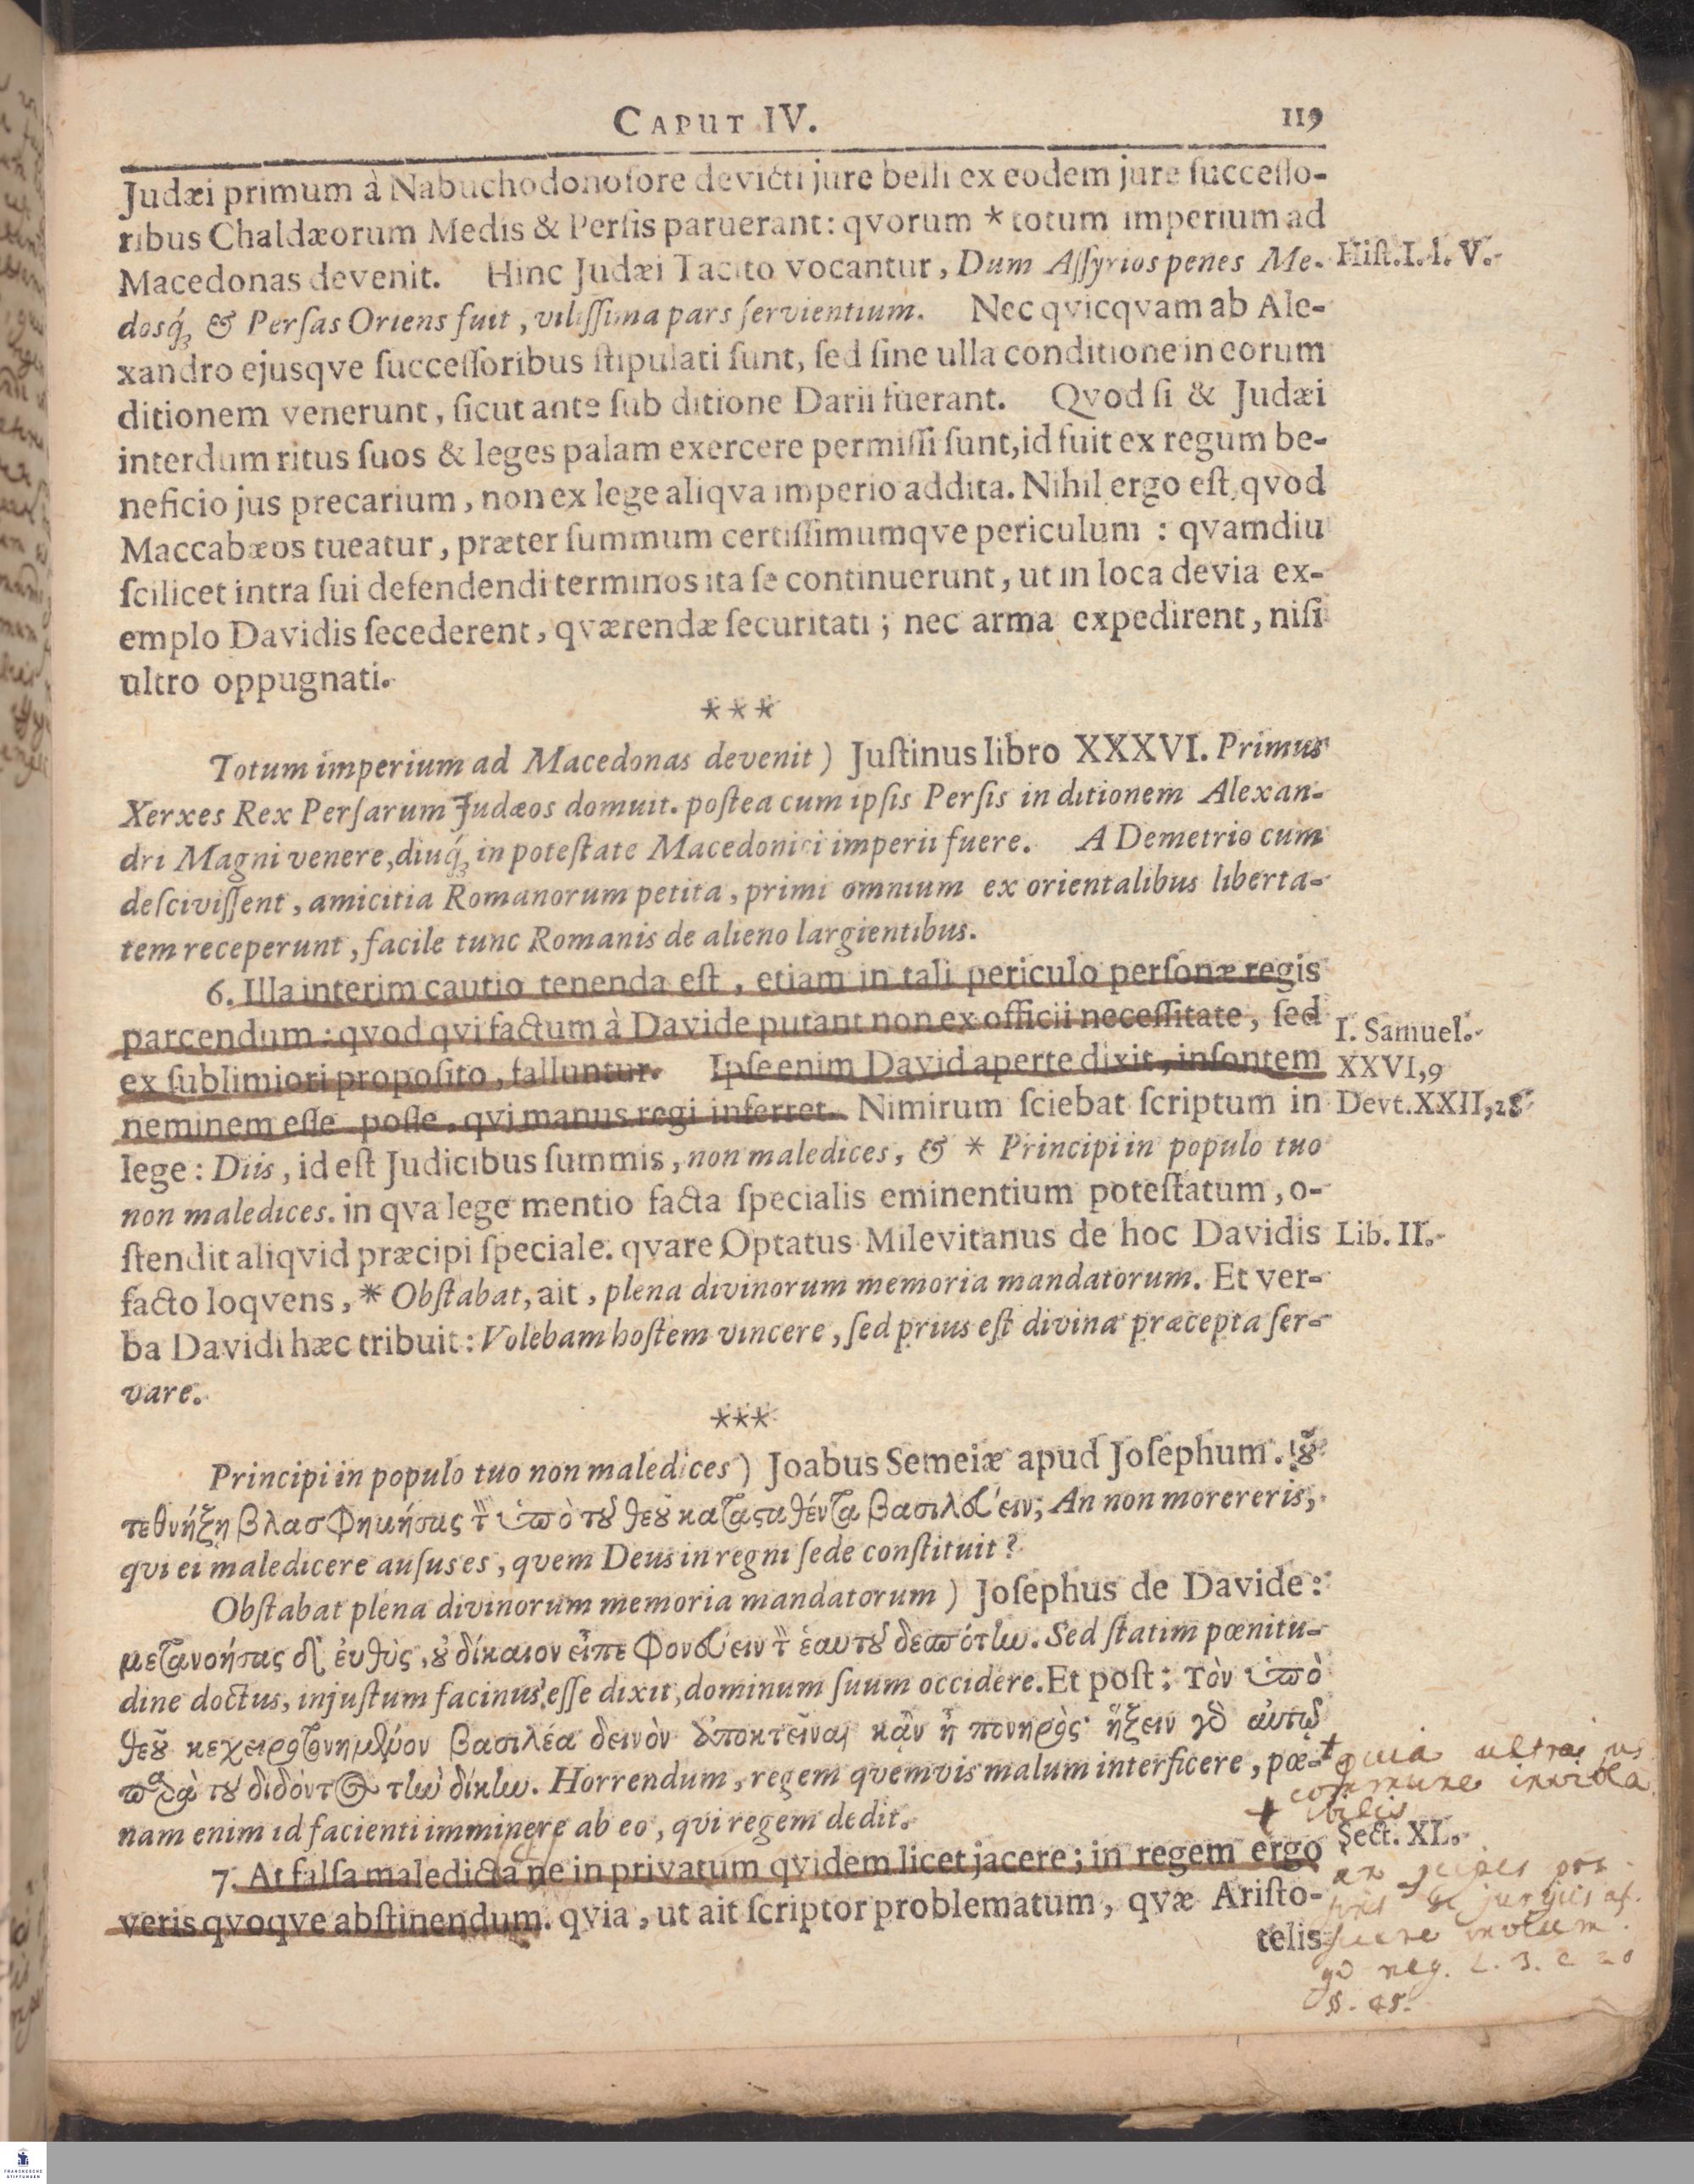 CAPUT IV. 119
Judæi primum à Nabuchodonosore devicti jure belli ex eodem jure successo-
ribus Chaldæorum Medis & Persis paruerant: qvorum * totum imperium ad
Macedonas devenit. Hinc Judæi Tacito vocantur, Dum Assyrios penes Me-
Hist. I. l. V.
dosq́; & Persas Oriens fuit, vilissima pars servientium. Nec qvicqvam ab Ale-
xandro ejusqve successoribus stipulati sunt, sed sine ulla conditione in eorum
ditionem venerunt, sicut ante sub ditione Darii fuerant. Qvod si & Judæi
interdum ritus suos & leges palam exercere permissi sunt, id fuit ex regum be-
neficio jus precarium, non ex lege aliqva imperio addita. Nihil ergo est, qvod
Maccabæos tueatur, præter summum certissimumqve periculum : qvamdiu
scilicet intra sui defendendi terminos ita se continuerunt, ut in loca devia ex-
emplo Davidis secederent, qværendæ securitati ; nec arma expedirent, nisi
ultro oppugnati.
***
Totum imperium ad Macedonas devenit ) Justinus libro XXXVI. Primus
Xerxes Rex Persarum Judæos domuit. postea cum ipsis Persis in ditionem Alexan-
dri Magni venere, diuq́; in potestate Macedonici imperii fuere. A Demetrio cum
descivissent, amicitia Romanorum petita, primi omnium ex orientalibus liberta-
tem receperunt, facile tunc Romanis de alieno largientibus.
6. Illa interim cautio tenenda est, etiam in tali periculo personæ regis
parcendum : qvod qvi factum à Davide putant non ex officii necessitate, sed
I. Samuel.
ex sublimiori proposito, falluntur. Ipse enim David aperte dixit, insontem
XXVI, 9
neminem esse posse, qvi manus regi inferret. Nimirum sciebat scriptum in
Devt. XXII, 28
lege : Diis, id est Judicibus summis, non maledices, & * Principi in populo tuo
non maledices. in qva lege mentio facta specialis eminentium potestatum, o-
stendit aliqvid præcipi speciale. qvare Optatus Milevitanus de hoc Davidis
Lib. II.
facto loqvens, * Obstabat, ait, plena divinorum memoria mandatorum. Et ver-
ba Davidi hæc tribuit : Volebam hostem vincere, sed prius est divina præcepta ser-
vare.
***
Principi in populo tuo non maledices ) Joabus Semeiæ apud Josephum. οὐ
τεθνήξῃ βλασφημήσας τὸν ὑπὸ τοῦ θεοῦ κατασαθέντα βασιλεύειν; An non morereris,
qui ei maledicere ausus es, quem Deus in regni sede constituit ?
Obstabat plena divinorum memoria mandatorum ) Josephus de Davide :
μετανοήσας δὲ ἐυθὺς, οὐ δίκαιον εἶπε φονεύειν τὸν ἑαυτοῦ δεσπότην. Sed statim pœnitu-
dine doctus, injustum facinus esse dixit, dominum suum occidere. Et post : Τὸν ὑπὸ
θεοῦ κεχειροτονημένον βασιλέα δεινὸν ἀποκτεῖναι κἂν ᾖ πονηρὸς· ἥξειν γὰρ αὐτῷ
παρὰ τοῦ διδόντος τὴν δίκην. Horrendum, regem quemvis malum interficere, pœ-
nam enim id facienti imminere ab eo, qui regem dedit.
+ quia ultra jus
commune inviola
bilis
7. At falsa maledicta ne in privatum qvidem licet jacere ; in regem ergo
Sect. XL.
veris qvoqve abstinendum. qvia, ut ait scriptor problematum, qvæ Aristo-
telis
neg. L. 3. c 20
§. 45.